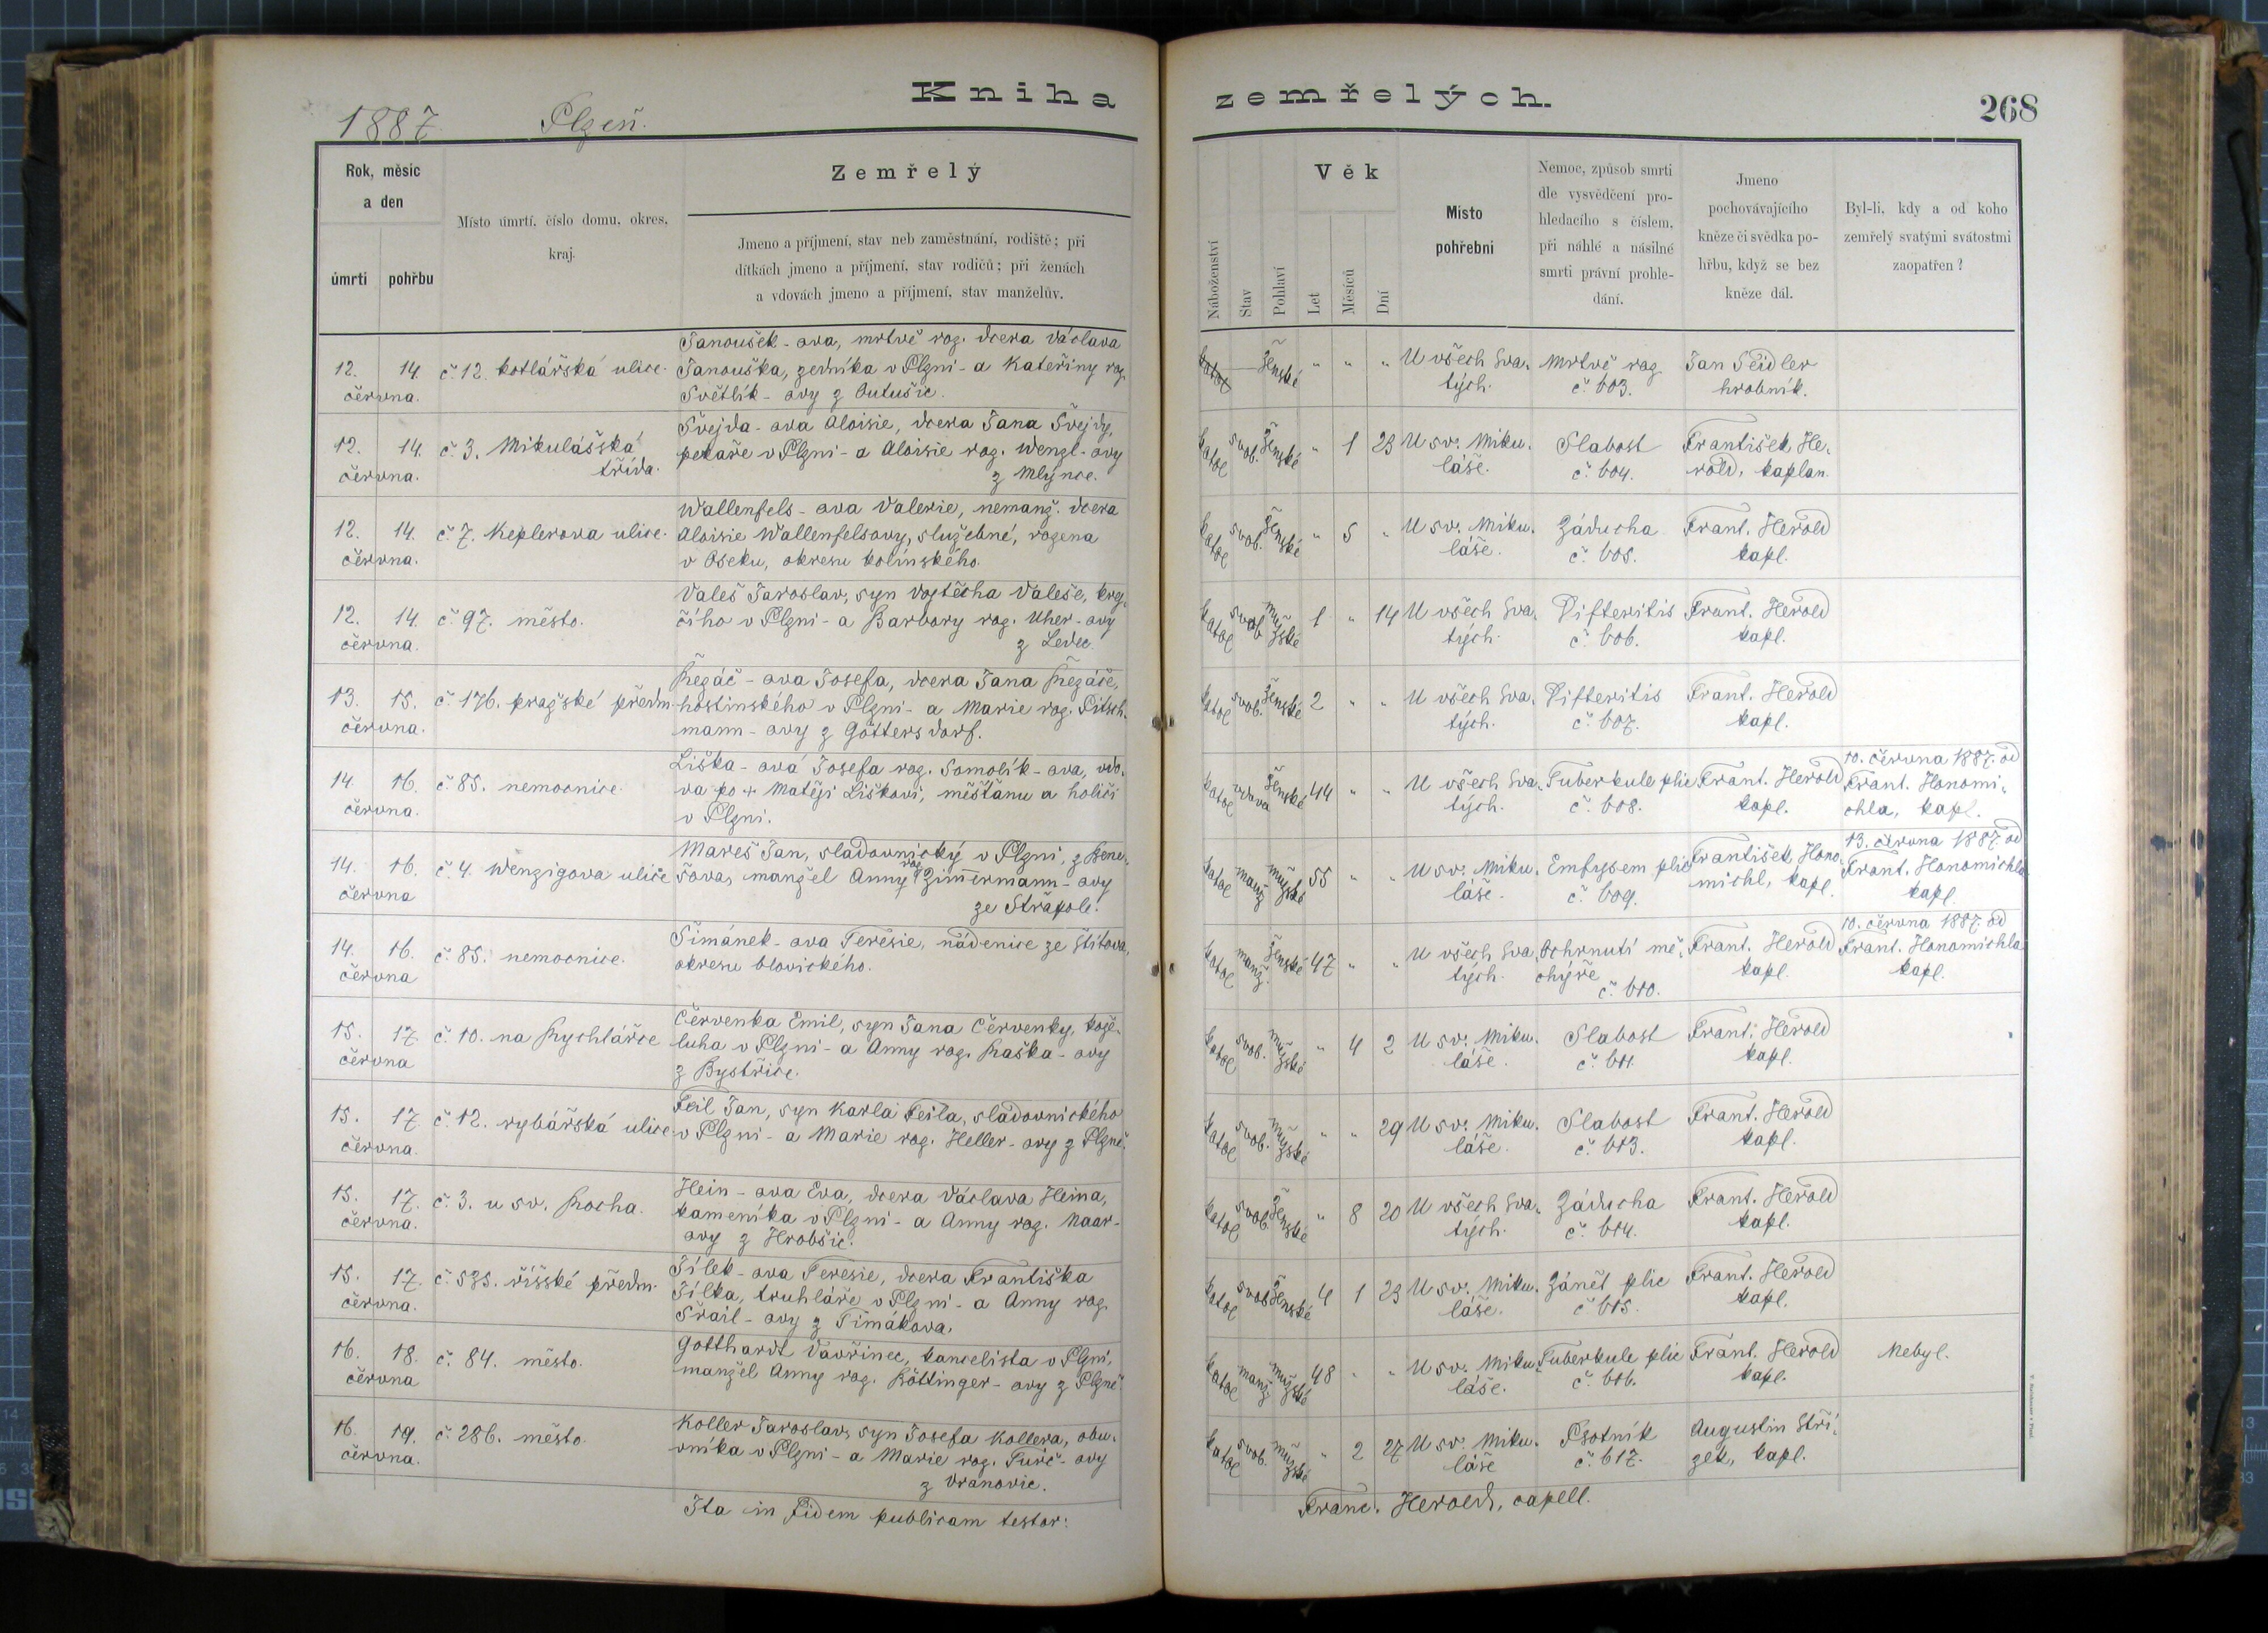 Kniha zemřelých.
268
1887 Plzeň.
Rok, měsíc
a den
úmrtí
pohřbu
Místo úmrtí, číslo domu, okres,
kraj.
Zemřelý
Jmeno a příjmení, stav neb zaměstnání, rodiště; při
dítkách jmeno a příjmení, stav rodičů; při ženách
a vdovách jmeno a příjmení, stav manželův.
Náboženství
Stav
Pohlaví
Věk
Let
Měsíců
Dní
Místo
pohřební
Nemoc, způsob smrti
dle vysvědčení pro-
hledacího s číslem,
při náhlé a násilné
smrti právní prohle-
dání.
Jmeno
pochovávajícího
kněze či svědka po-
hřbu, když se bez
kněze dál.
Byl-li, kdy a od koho
zemřelý svatými svátostmi
zaopatřen?
12. 14. června.
č. 12. kotlářská ulice.
Janoušek-ova, mrtvě roz. dcera Václava
Janouška, zedníka v Plzni - a Kateřiny roz.
Světlík-ovy z Outušic.
katol ženské " " "
U všech Sva-
tých.
Mrtvě roz
č. 603.
Jan Seidler
hrobník.
12. 14. června.
č. 3. Mikulášská
třída.
Švejda-ova Aloisie, dcera Jana Švejdy,
pekaře v Plzni - a Aloisie roz. Wengl-ovy
z Mlýnce.
katol svob. ženské " 1 23
U sv. Miku-
láše.
Slabost
č. 604.
František He-
rold, kaplan.
12. 14. června.
č. 7. Keplerova ulice.
Wallenfels-ova Valerie, nemanž. dcera
Aloisie Wallenfelsovy, služebné, rozena
v Oseku, okresu kolínského.
katol svob. ženské " 5 "
U sv. Miku-
láše.
Záducha
č. 605.
Frant. Herold
kapl.
12. 14. června.
č. 97. město.
Valeš Jaroslav, syn Vojtěcha Valeše, krej-
čího v Plzni - a Barbory roz. Uher-ovy
z Ledec.
katol svob mužské 1 " 14
U všech Sva-
tých.
Difteritis
č. 606.
Frant. Herold
kapl.
13. 15. června.
č. 176. pražské předm.
Řezáč-ova Josefa, dcera Jana Řezáče,
hostinského v Plzni - a Marie roz. Pitsch-
mann-ovy z Göttersdorf.
katol svob. ženské 2 " "
U všech Sva-
tých.
Difteritis
č. 607.
Frant. Herold
kapl.
14. 16. června.
č. 85. nemocnice.
Liška-ová Josefa roz. Somolík-ova, vdo-
va po + Matěji Liškovi, měšťanu a holiči
v Plzni.
katol vdova ženské 44 " "
U všech Sva-
tých.
Tuberkule plic
č. 608.
Frant. Herold
kapl.
10. června 1887. od
Frant. Honomi-
chla, kapl.
14. 16. června
č. 4. Wenzigova ulice
Mareš Jan, sladovnický v Plzni, z Bene-
šova, manžel Anny roz. Zimmermann-ovy
ze Strápole.
katol manž mužské 55 " "
U sv. Miku-
láše.
Emfysem plic
č. 609.
František Hono-
michl, kapl.
13. června 1887. od
Frant. Honomichla
kapl.
14. 16. června
č. 85. nemocnice.
Šimánek-ova Teresie, nádenice ze Štítova,
okresu blovického.
katol manž. ženské 47 " "
U všech Sva-
tých.
Ochrnutí mě-
chýře
č. 610.
Frant. Herold
kapl.
10. června 1887. od
Frant. Honomichla
kapl.
15. 17. června
č. 10. na Rychtářce
Červenka Emil, syn Jana Červenky, kože-
luha v Plzni - a Anny roz. Kaška-ovy
z Bystřice.
katol svob. mužské " 4 2
U sv. Miku-
láše.
Slabost
č. 611.
Frant. Herold
kapl.
15. 17 června.
č. 12. rybářská ulice.
Feil Jan, syn Karla Feila, sladovnického
v Plzni - a Marie roz. Heller-ovy z Plzně.
katol svob. mužské " " 29
U sv. Miku-
láše.
Slabost
č. 613.
Frant. Herold
kapl.
15. 17. června.
č. 3. u sv. Rocha.
Hein-ova Eva, dcera Václava Heina,
kameníka v Plzni - a Anny roz. Naar-
ovy z Hrobšic.
katol svob ženské " 8 20
U všech Sva-
tých.
Záducha
č. 614.
Frant. Herold
kapl.
15. 17. června.
č. 535. říšské předm.
Jílek-ova Teresie, dcera Františka
Jílka, truhláře v Plzni - a Anny roz.
Šrail-ovy z Timákova.
katol svob ženské 4 1 23
U sv. Miku-
láše.
Zánět plic
č. 615.
Frant. Herold
kapl.
16. 18. června
č. 84. město.
Gotthardt Vavřinec, kancelista v Plzni,
manžel Anny roz. Röttinger-ovy z Plzně
katol manž mužské 48 " "
U sv. Miku-
láše.
Tuberkule plic
č. 616.
Frant. Herold
kapl.
Nebyl.
16. 19. června.
č. 286. město.
Koller Jaroslav, syn Josefa Kollera, obu-
vníka v Plzni - a Marie roz. Turč-ovy
z Vranovic.
katol svob. mužské " 2 27
U sv. Miku-
láše
Psotník
č. 617.
Augustin Stří-
zek, kapl.
Ita in fidem publicam testor:
Franc. Herold, capell.